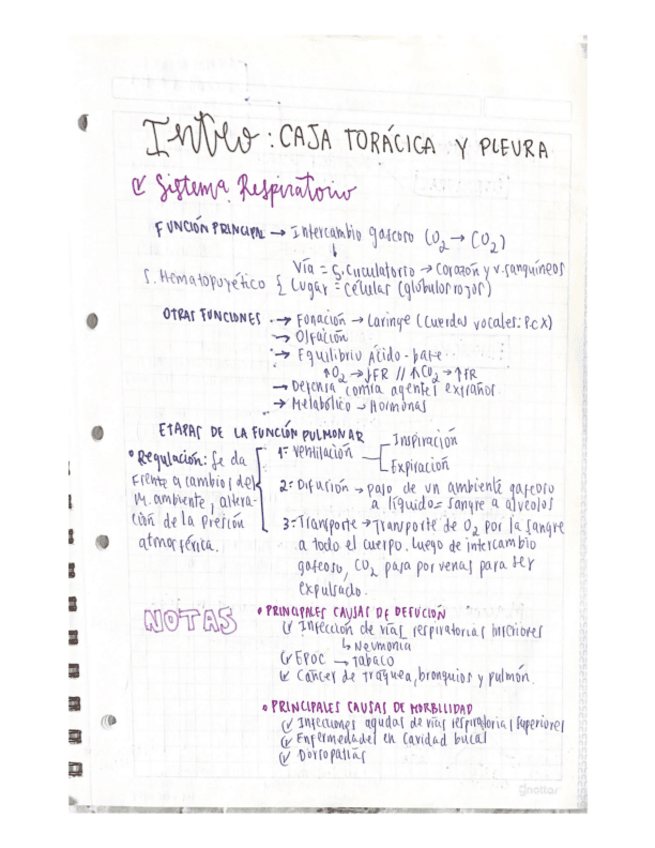 Intro: CAJA TORÁCICA Y PLEURA
Sistema Respiratorio
FUNCIÓN PRINCIPAL → Intercambio gaseoso (O2 → CO2)
↓
Vía = S. Circulatorio → Corazón y v. sanguíneos
S. Hematopoyético { Lugar = Células (glóbulos rojos)
OTRAS FUNCIONES → Fonación → Laringe (Cuerdas vocales: P.C X)
→ Olfación
→ Equilibrio Ácido-base
↑O2 → ↓FR // ↑CO2 → ↑FR
→ Defensa contra agentes extraños
→ Metabólico → Hormonas
ETAPAS DE LA FUNCIÓN PULMONAR
• Regulación: Se da
frente a cambios del
M. ambiente, altera-
ción de la presión
atmosférica.
1= Ventilación
Inspiración
Expiración
2= Difusión → paso de un ambiente gaseoso
a líquido = sangre a alveolos
3= Transporte → Transporte de O2 por la sangre
a todo el cuerpo. luego de intercambio
gaseoso, CO2 pasa por venas para ser
expulsado.
NOTAS
• PRINCIPALES CAUSAS DE DEFUCIÓN
Infección de vías respiratorias inferiores
↳ Neumonía
EPOC → Tabaco
Cáncer de tráquea, bronquios y pulmón.
• PRINCIPALES CAUSAS DE MORBILIDAD
Infecciones agudas de vías respiratorias superiores
Enfermedades en cavidad bucal
Dorsopatías